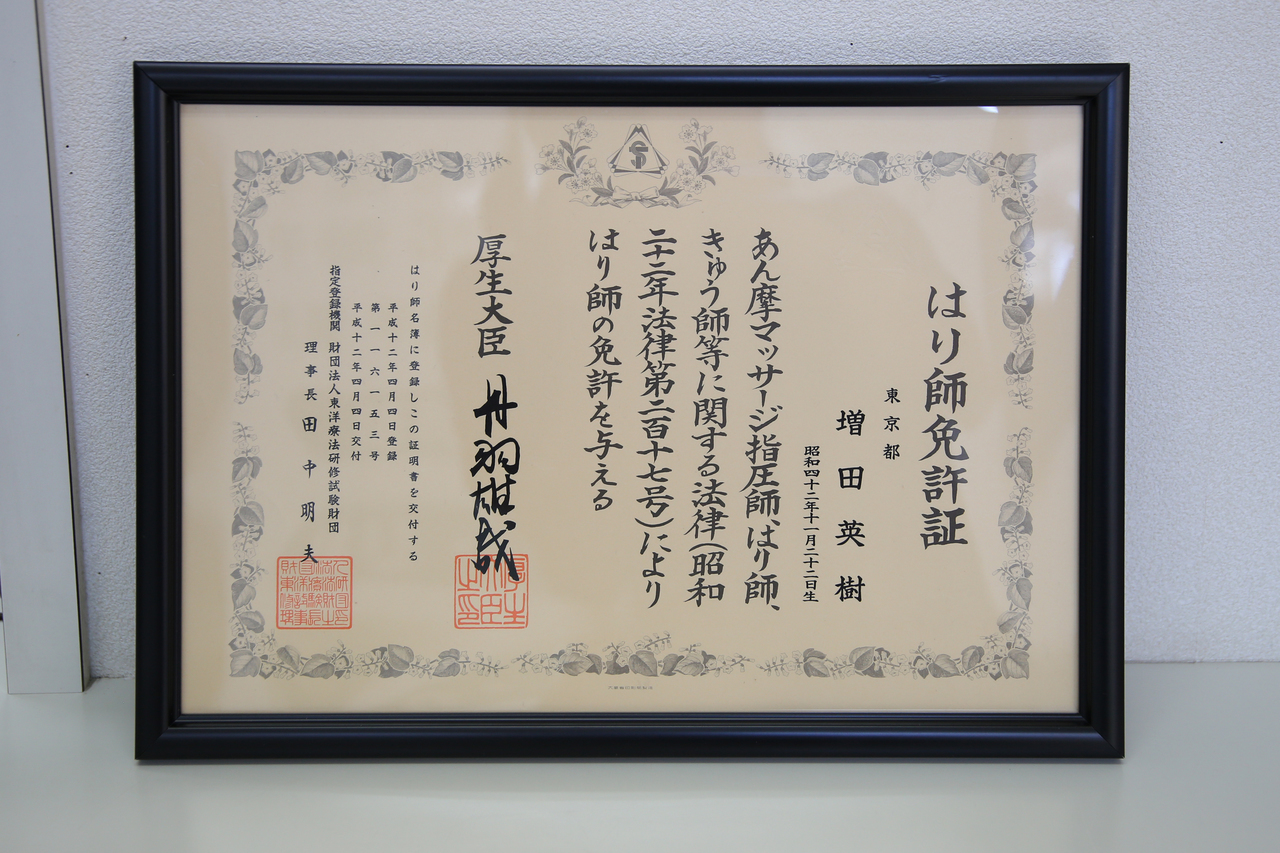 はり師免許証
東京都
増田英樹
昭和四十二年十一月二十二日生
あん摩マッサージ指圧師、はり師、
きゅう師等に関する法律(昭和
二十二年法律第二百十七号)により
はり師の免許を与える
厚生大臣 丹羽雄哉
厚生大臣之印
はり師名簿に登録しこの証明書を交付する
平成十二年四月四日登録
第一一六一五三号
平成十二年四月四日交付
指定登録機関 財団法人東洋療法研修試験財団
理事長 田中明夫